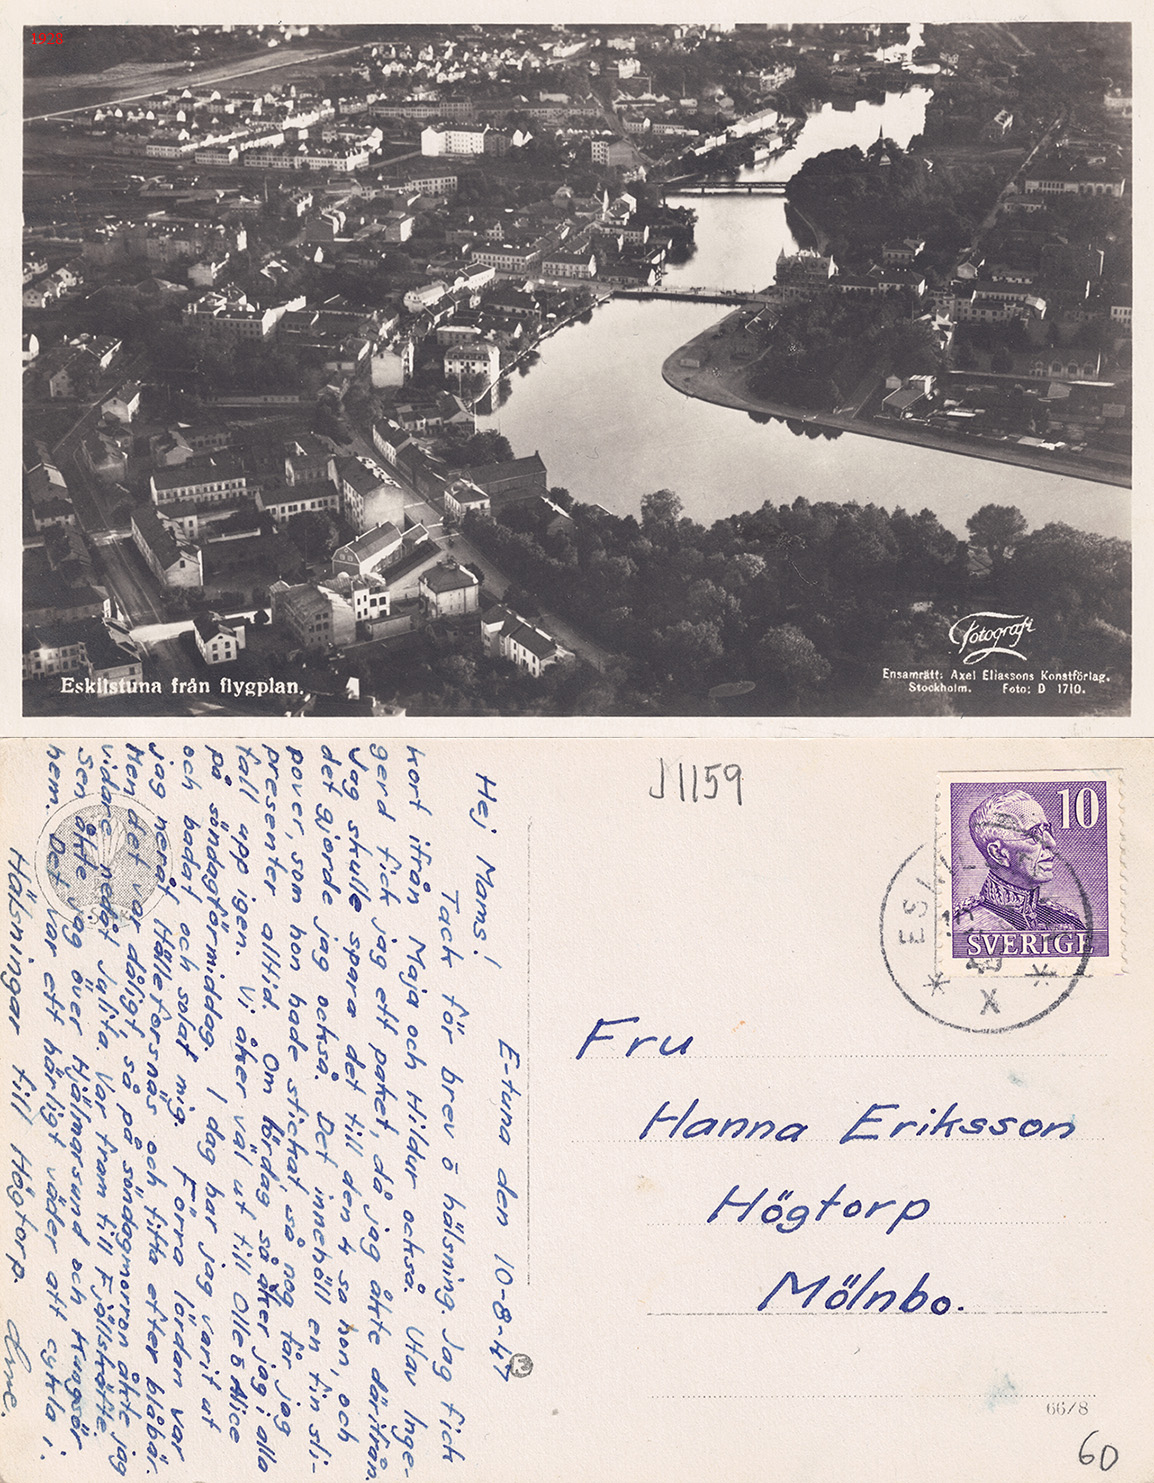 1938
Eskilstuna från flygplan.
Fotografi
Ensamrätt: Axel Eliassons Konstförlag.
Stockholm. Foto: D 1710.
J 1159
10
SVERIGE
Hej Mams! E-tuna den 10-8-47
Tack för brev o hälsning. Jag fick
kort ifrån Maja och Hildur också. Utav Inge-
gerd fick jag ett paket, då jag åkte därifrån.
Jag skulle spara det till den 4 sa hon, och
det gjorde jag också. Det innehöll en fin sli-
pover, som hon hade stickat, så nog får jag
presenter alltid. Om lördag, så åker jag i alla
fall upp igen. Vi åker väl ut till Olle o Alice
på söndagförmiddag. I dag har jag varit ut
och badat och solat mig. Förra lördan var
jag neråt Hälleforsnäs och titta efter blåbär.
Men det var dåligt, så på söndagmorron åkte jag
vidare nedåt Julita. Var fram till Fjällskäfte.
Sen åkte jag över Hjälmarsund och Kungsör
hem. Det var ett härligt väder att cykla i.
Hälsningar till Högtorp.
Fru
Hanna Eriksson
Högtorp
Mölnbo.
66/8
60